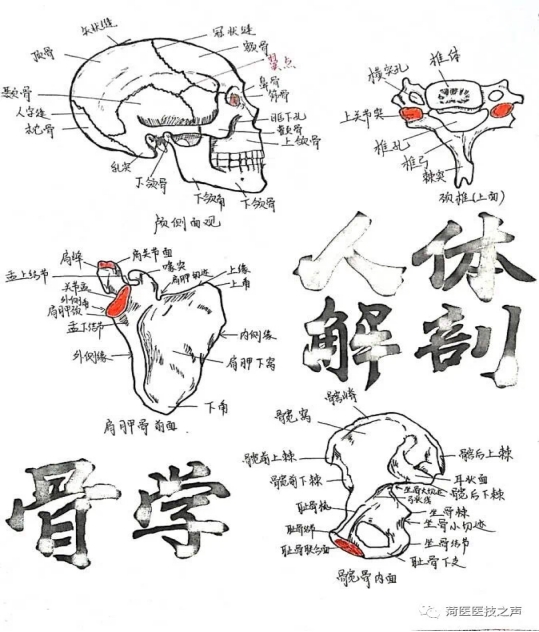 矢状缝
冠状缝
顶骨
额骨
翼点
颞骨
鼻骨
筛骨
人字缝
枕骨
眶下孔
颧骨
上颌骨
乳突
下颌骨
下颌角
下颌骨
颅侧面观
横突孔
椎体
上关节突
椎孔
椎弓
棘突
颈椎(上面)
人体
解剖
肩峰
肩关节面
喙突
肩胛切迹
上缘
上角
盂上结节
关节盂
外侧角
肩胛颈
盂下结节
外侧缘
内侧缘
肩胛下窝
下角
肩胛骨前面
骨学
髂嵴
髂窝
髂前上棘
髂后上棘
髂前下棘
耳状面
髂后下棘
坐骨大切迹
弓状线
坐骨棘
坐骨小切迹
耻骨梳
耻骨结节
坐骨结节
耻骨联合面
耻骨下支
髋骨内面
菏医医技之声